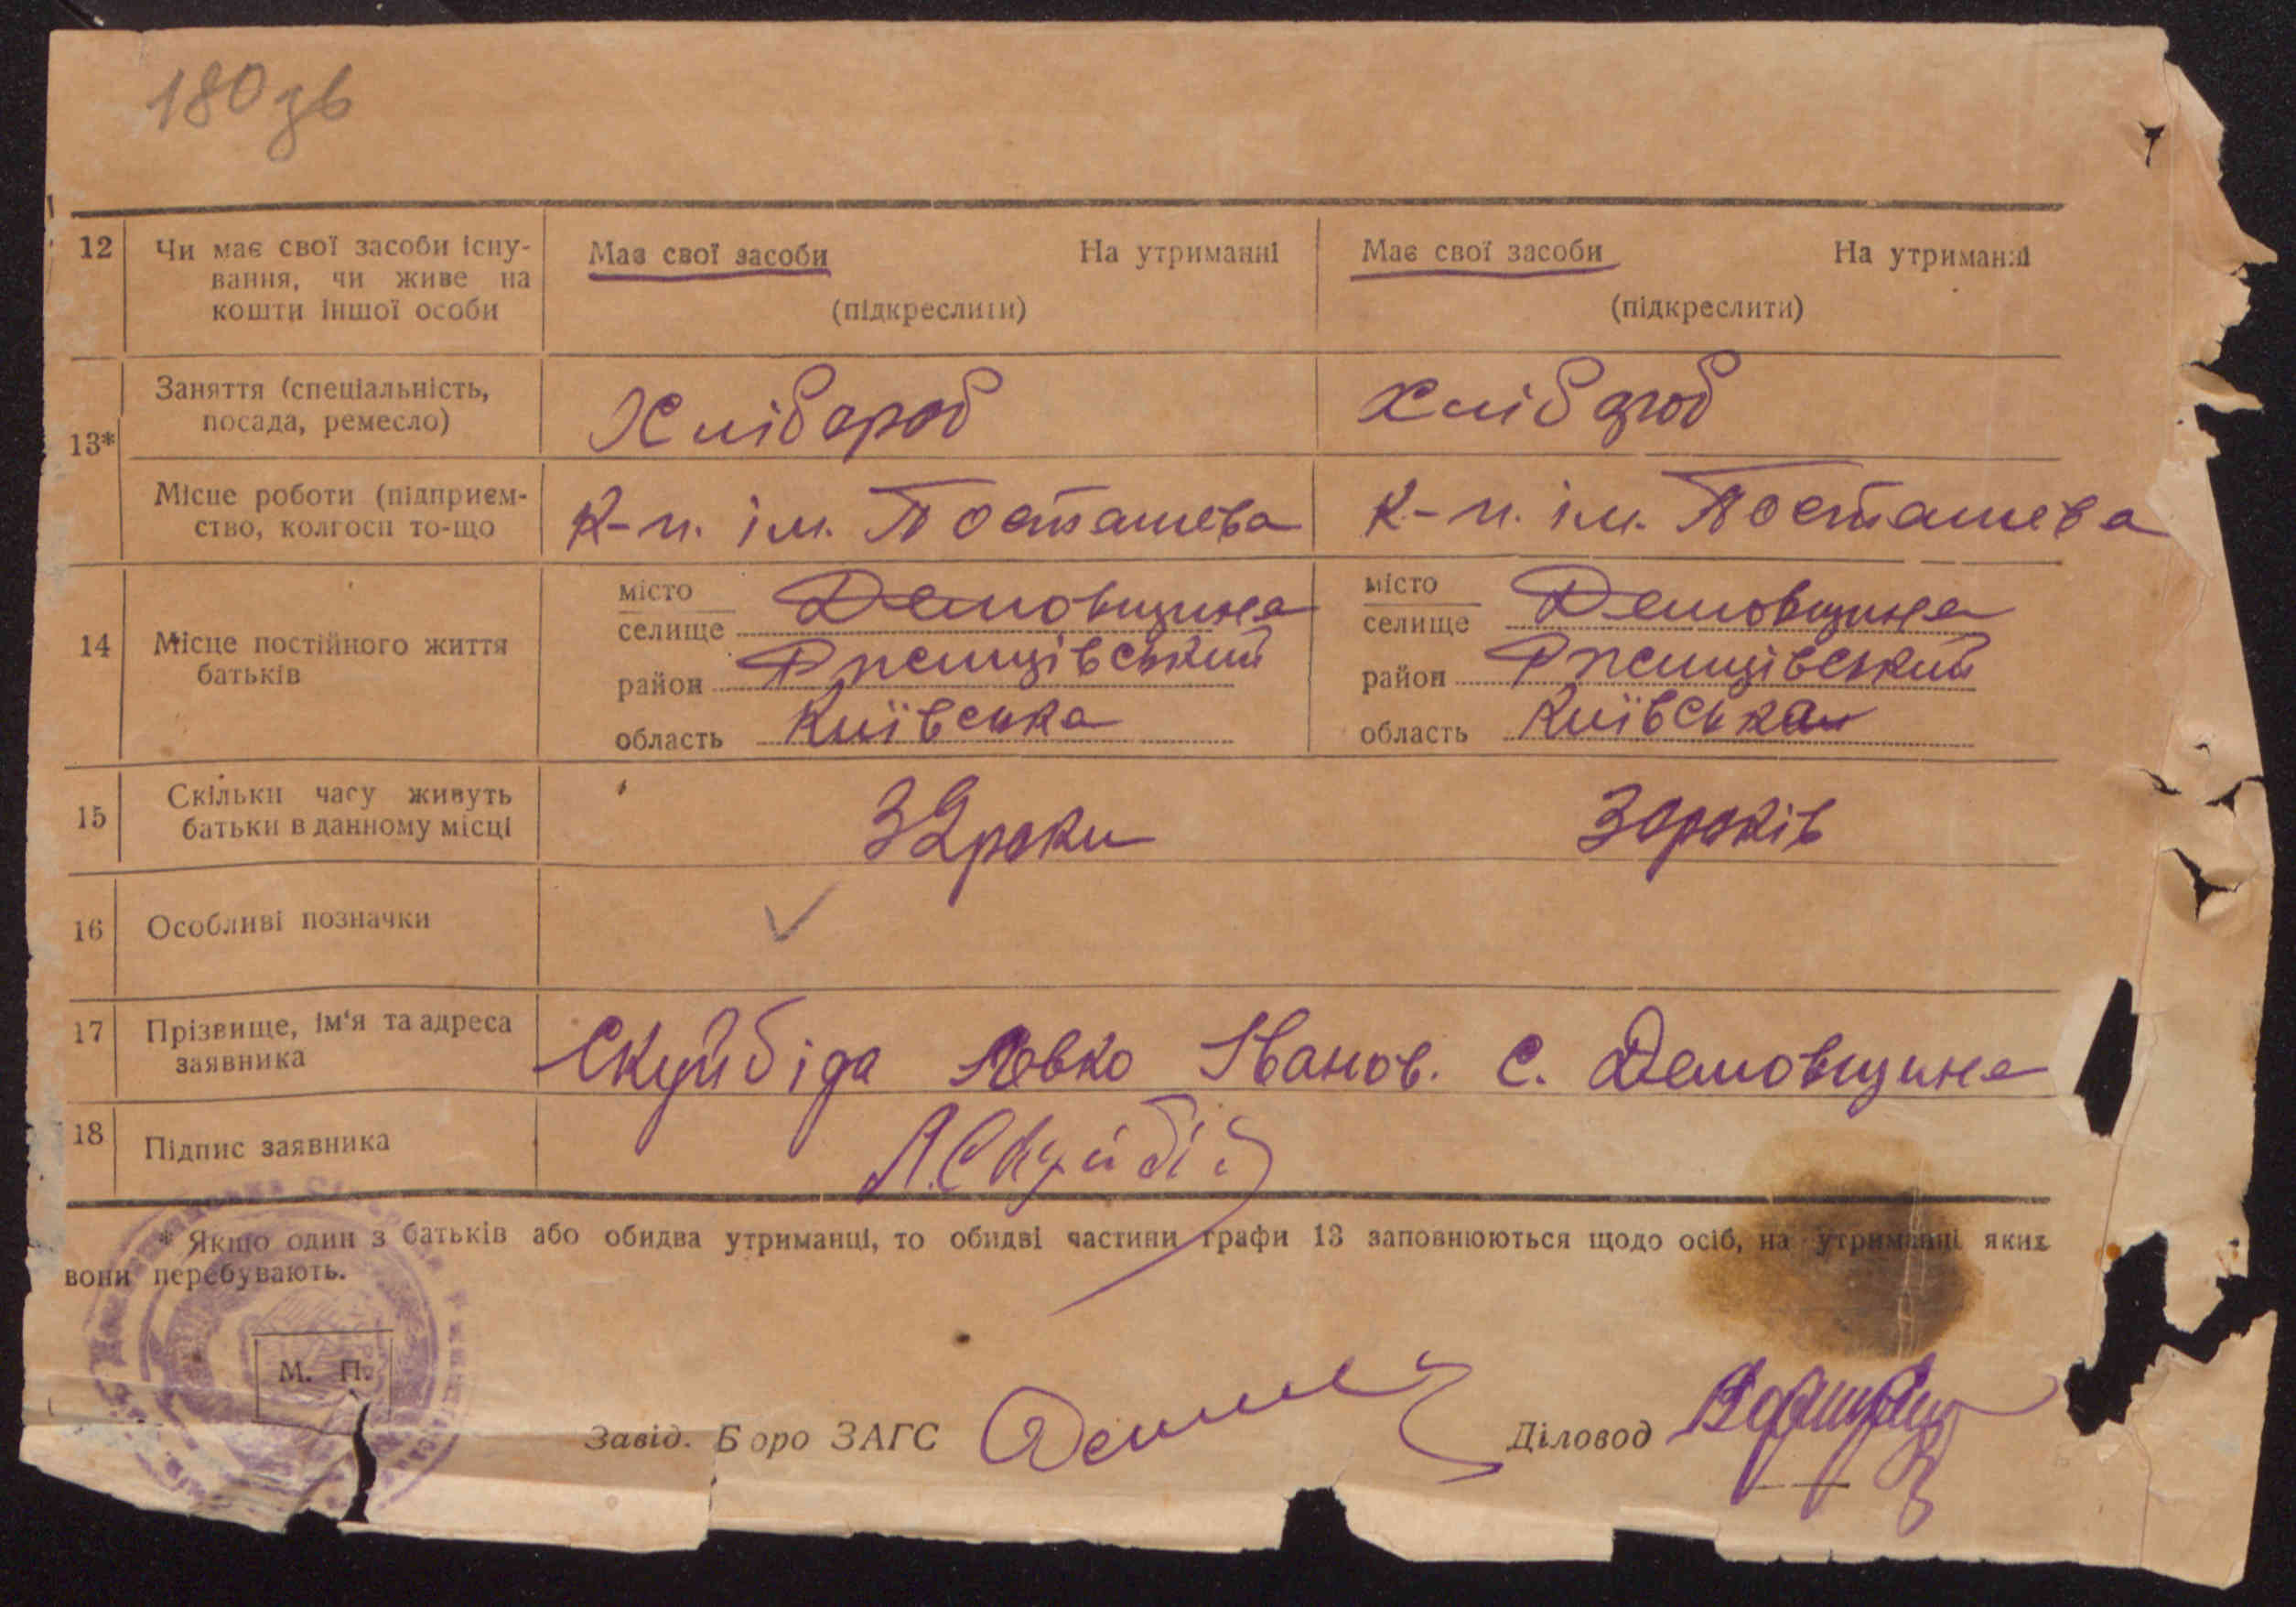 180 зв
12 Чи має свої засоби існу-
вання, чи живе на
кошти іншої особи
Має свої засоби На утриманні
(підкреслити)
Має свої засоби На утриманні
(підкреслити)
13*
Заняття (спеціальність,
посада, ремесло)
Хлібороб
Хлібороб
Місце роботи (підприєм-
ство, колгосп то-що
К-п. ім. Посташева
К-п. ім. Посташева
14 Місце постійного життя
батьків
місто
селище Демовщина
район
область Київська
місто
селище Демовщина
район
область Київська
15 Скільки часу живуть
батьки в данному місці
32 роки
30 років
16 Особливі позначки
17 Прізвище, ім'я та адреса
заявника
Скуйбіда Левко Іванов. с. Демовщина
18 Підпис заявника
Л. Скуйбід
* Якщо один з батьків або обидва утриманці, то обидві частини графи 13 заповнюються щодо осіб, на утриманні яких
вони перебувають.
М. П.
Завід. Бюро ЗАГС
Діловод